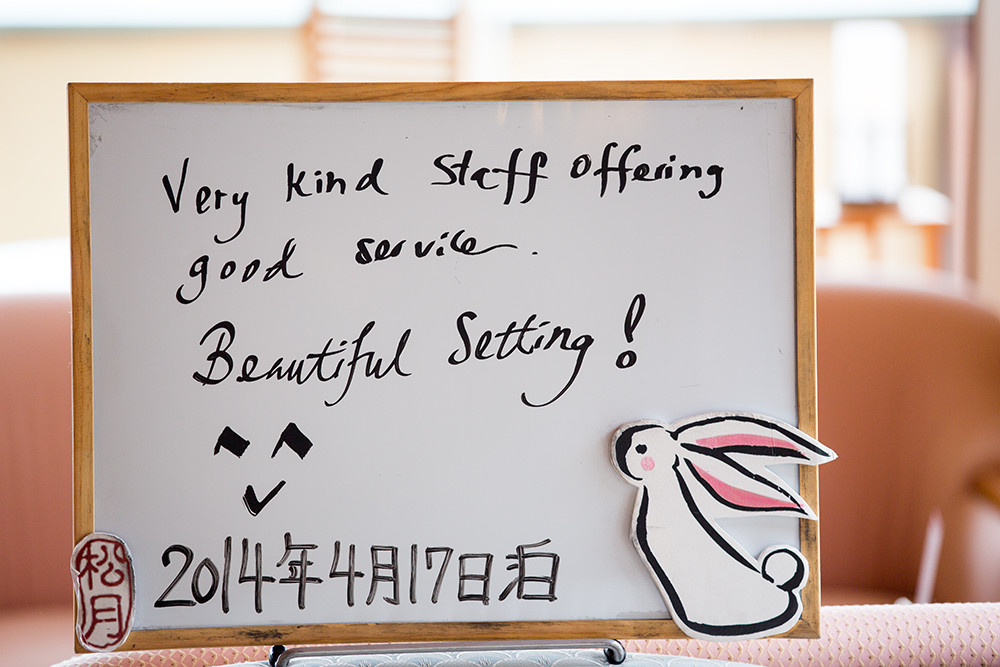 Very kind staff offering
good service.
Beautiful Setting!
2014年4月17日泊
松月